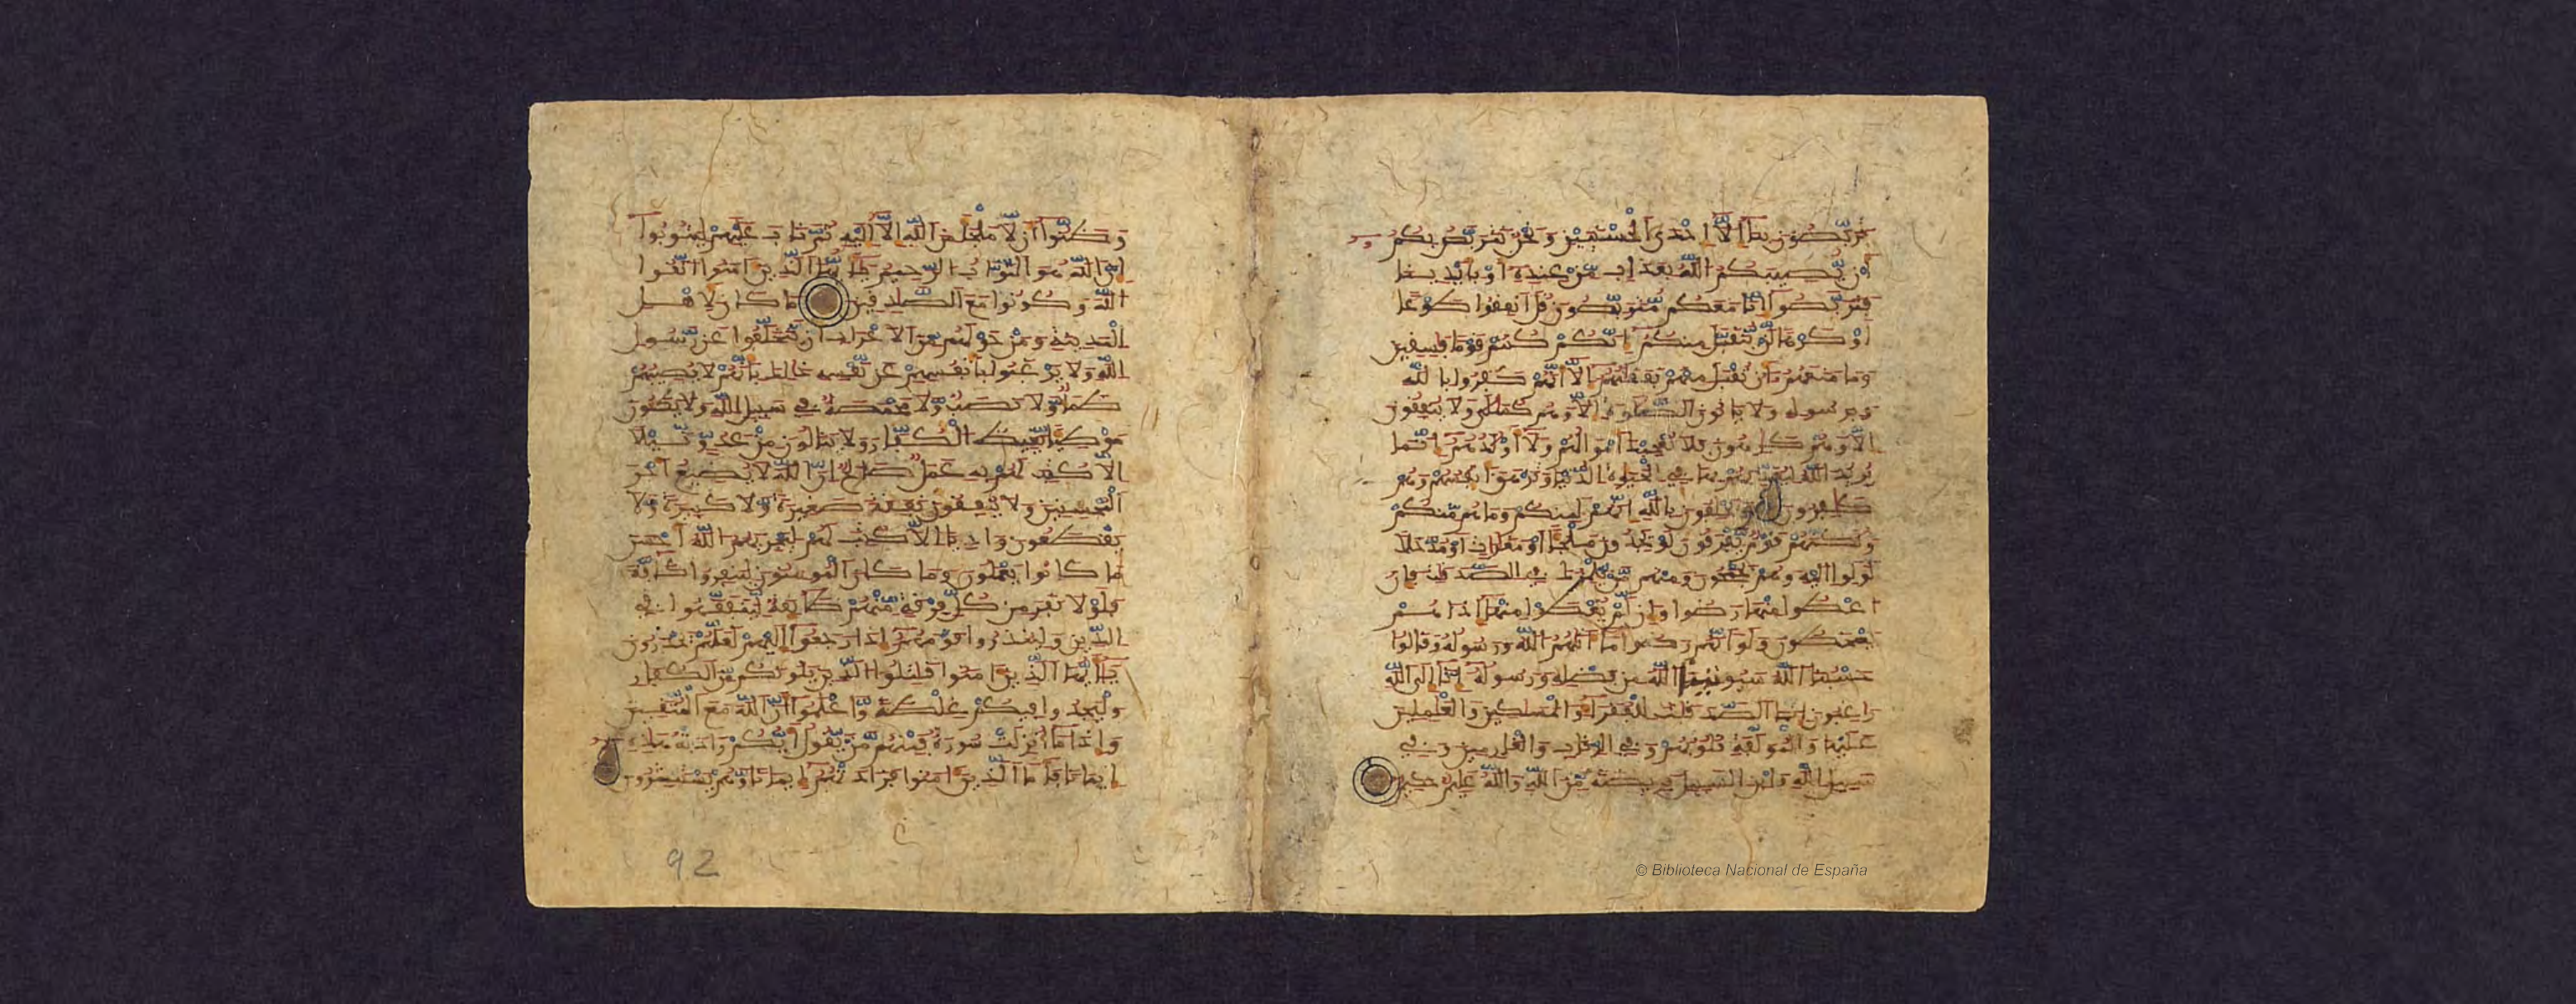 تربصون بنا إلا إحدى الحسنيين ونحن نتربص بكم
أن يصيبكم الله بعذاب من عنده أو بأيدينا
فتربصوا إنا معكم متربصون قل أنفقوا طوعا
أو كرها لن يتقبل منكم إنكم كنتم قوما فسقين
وما منعهم أن تقبل منهم نفقتهم إلا أنهم كفروا بالله
وبرسوله ولا ياتون الصلوة إلا وهم كسالى ولا ينفقون
إلا وهم كرهون فلا تعجبك أموالهم ولا أولدهم إنما
يريد الله ليعذبهم بها في الحيوة الدنيا وتزهق أنفسهم وهم
كفرون ويحلفون بالله إنهم لمنكم وما هم منكم
ولكنهم قوم يفرقون لو يجدون ملجئا أو مغرت أو مدخلا
لولوا إليه وهم يجمحون ومنهم من يلمزك في الصدقت فإن
اعطوا منها رضوا وإن لم يعطوا منها إذا هم
يسخطون ولو أنهم رضوا ما اتهم الله ورسوله وقالوا
حسبنا الله سيوتينا الله من فضله ورسوله إنا إلى الله
راغبون إنما الصدقت للفقراء والمسكين والعملين
عليها والمولفة قلوبهم وفي الرقاب والغرمين وفي
سبيل الله وابن السبيل فريضة من الله والله عليم حكيم
وظنوا أن لا ملجأ من الله إلا إليه ثم تاب عليهم ليتوبوا
إن الله هو التواب الرحيم يأيها الذين امنوا اتقوا
الله وكونوا مع الصدقين ما كان لأهل
المدينة ومن حولهم من الأعراب أن يتخلفوا عن رسول
الله ولا يرغبوا بأنفسهم عن نفسه ذلك بأنهم لا يصيبهم
ظمأ ولا نصب ولا مخمصة في سبيل الله ولا يطئون
موطئا يغيظ الكفار ولا ينالون من عدو نيلا
إلا كتب لهم به عمل صلح إن الله لا يضيع أجر
المحسنين ولا ينفقون نفقة صغيرة ولا كبيرة ولا
يقطعون واديا إلا كتب لهم ليجزيهم الله أحسن
ما كانوا يعملون وما كان المومنون لينفروا كافة
فلولا نفر من كل فرقة منهم طائفة ليتفقهوا في
الدين ولينذروا قومهم إذا رجعوا إليهم لعلهم يحذرون
يأيها الذين امنوا قتلوا الذين يلونكم من الكفار
وليجدوا فيكم غلظة واعلموا أن الله مع المتقين
وإذا ما أنزلت سورة فمنهم من يقول أيكم زادته هذه
إيمانا فأما الذين امنوا فزادتهم إيمانا وهم يستبشرون
92
© Biblioteca Nacional de España